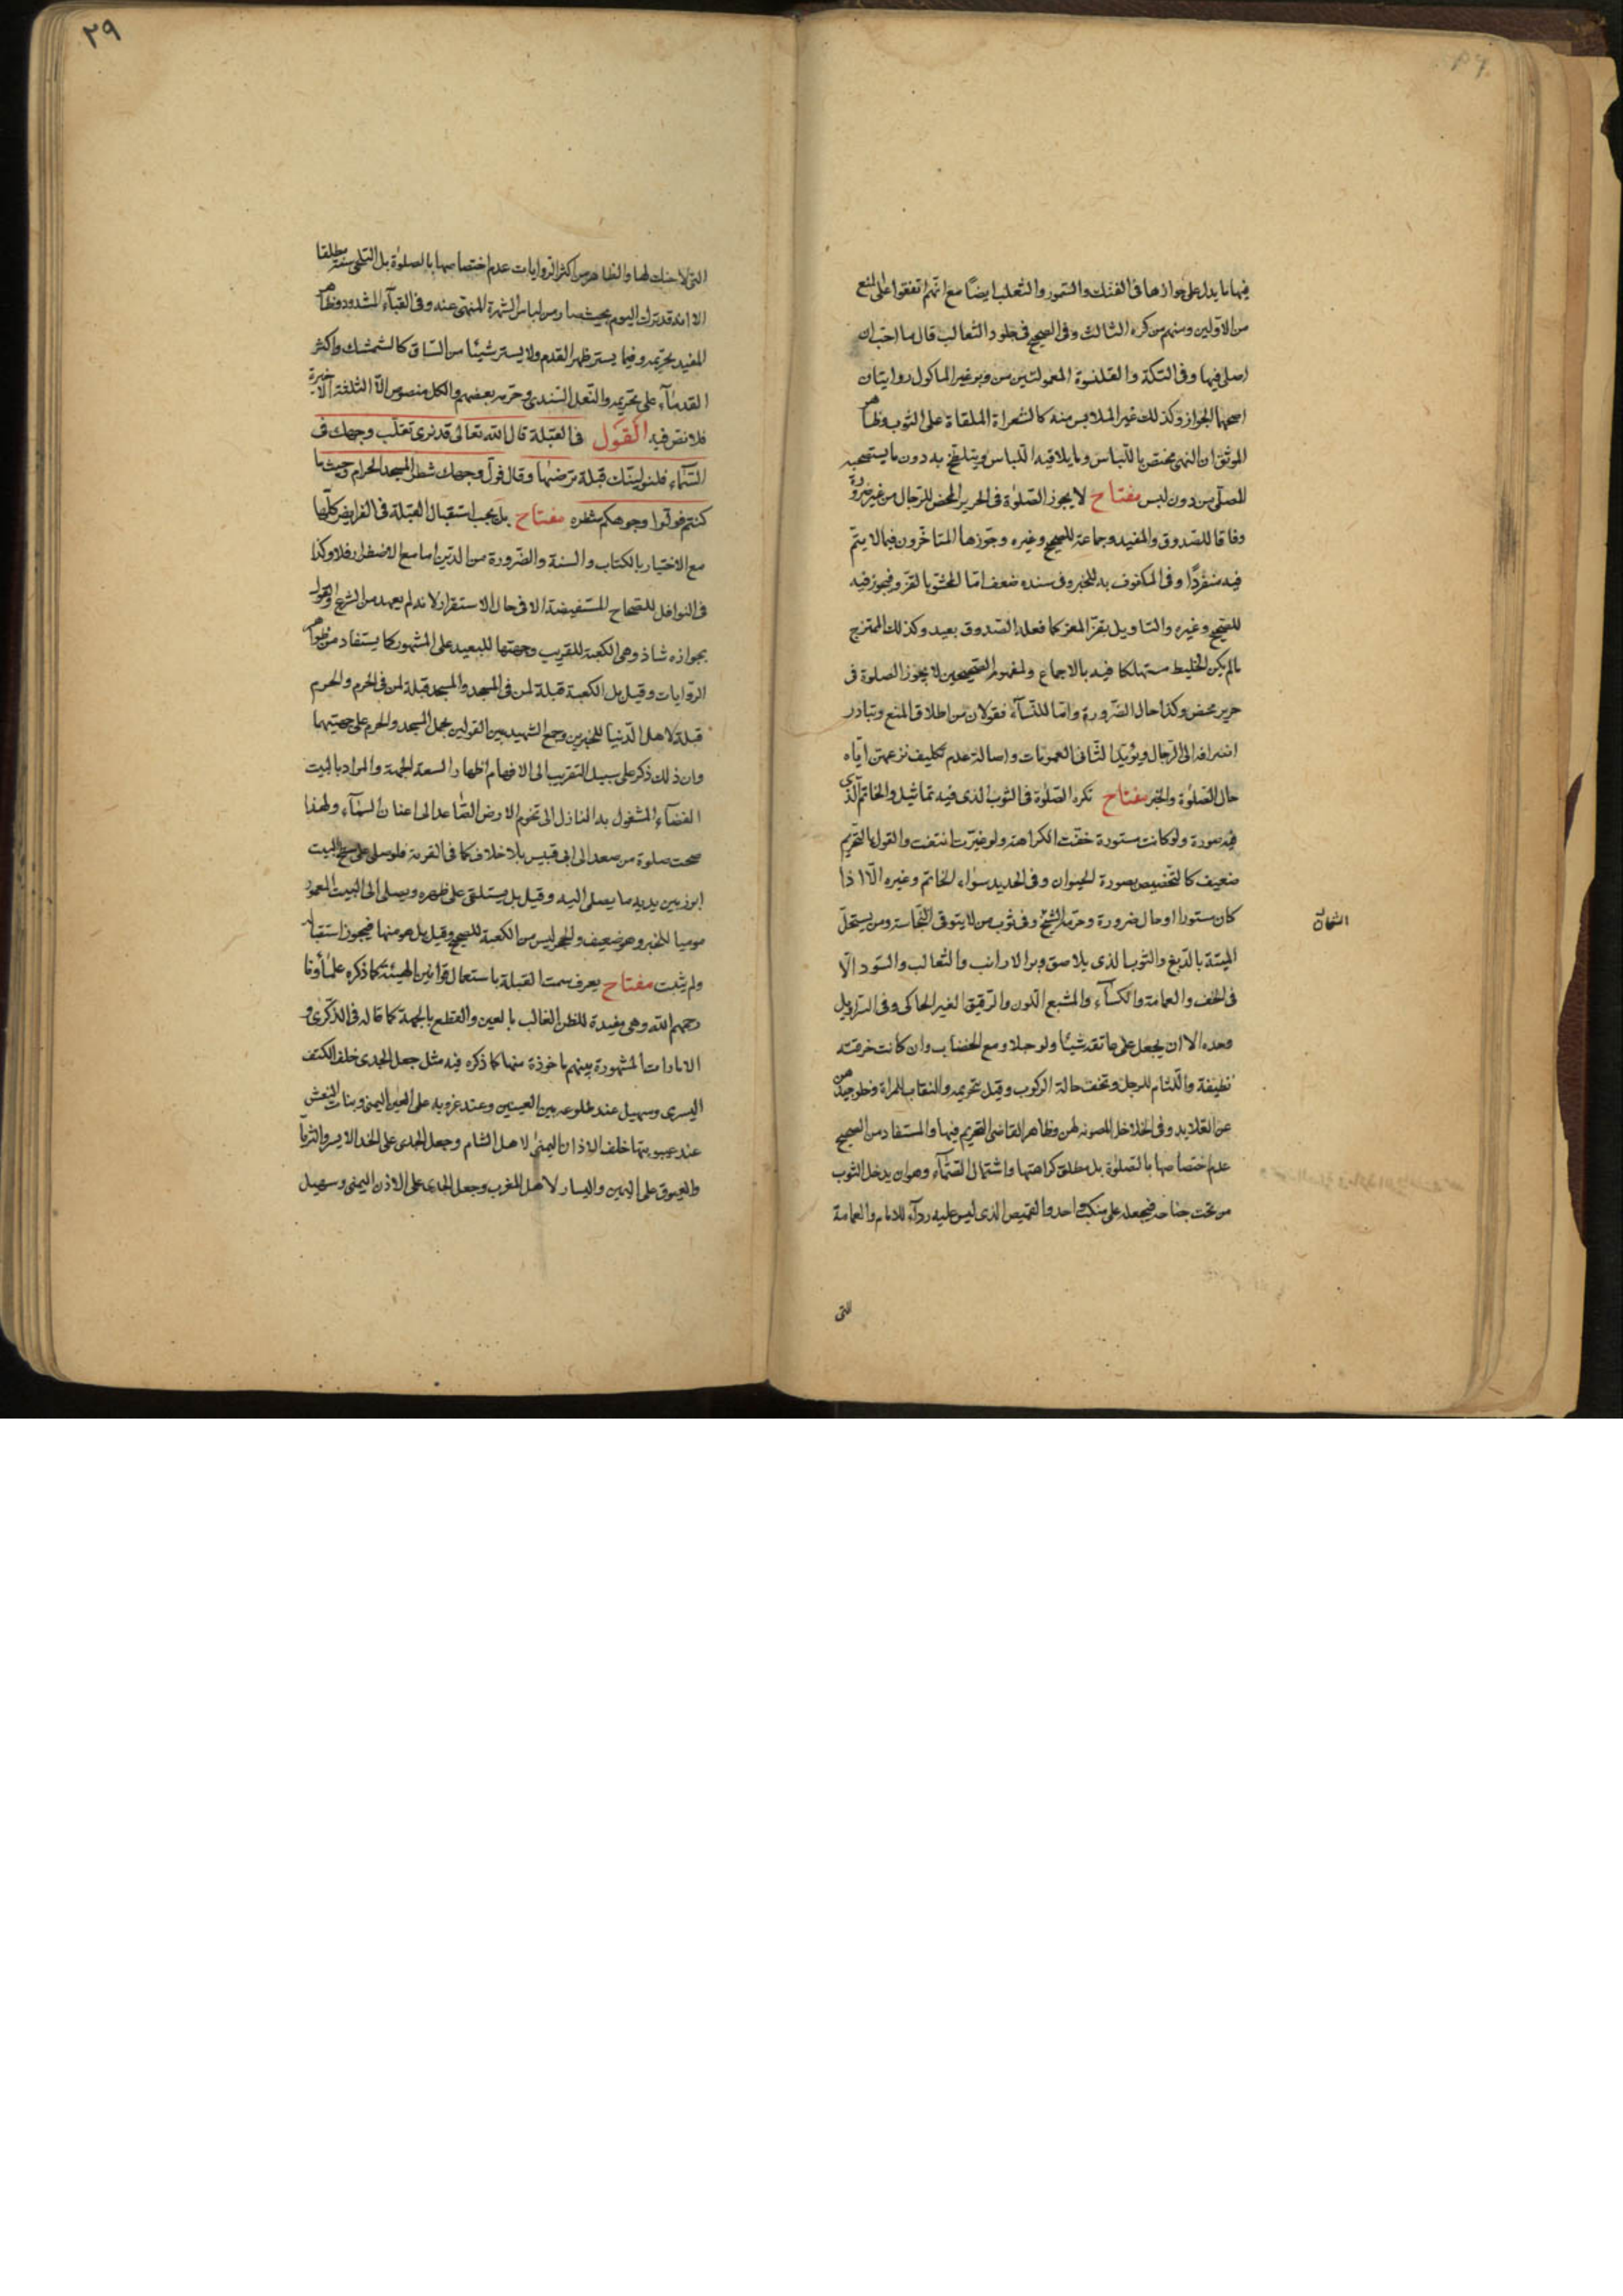 فيها ما يدل على جوازها فى الفنك والسمور والثعلب ايضًا مع انّهم اتفقوا على المنع
من الاولين ومنهم من كره الثالث وفى الصحيح فى جلود الثعالب قال ما احب ان
اصلى فيها وفى التكة والقلنسوة المعمولتين من وبر غير الماكول روايتان
اصحهما الجواز وكذلك غير الملابس منه كالشعراة الملقاة على الثوب وظاهر
الموثق ان النهى مختص باللّباس وما يلاقيه اللّباس ويتلطخ به دون ما يستصحبه
المصلى من دون لبس مفتاح لا يجوز الصّلوة فى الحرير المحض للرّجال من غير ضرورة
وفاقا للصّدوق والمفيد وجماعة للصحيح وغيره وجوّزها المتاخّرون فيما لا يتم
فيه منفردًا وفى المكفوف به للخبر وفى سنده ضعف امّا المحشّو بالقزّ فيجوز فيه
للصّحيح وغيره والتاويل بقزّ المعز كما فعله الصّدوق بعيد وكذلك الممتزج
ما لم يكن الخليط مستهلكا فيه بالاجماع ولمفهوم الصّحيحين لا يجوز الصلوة فى
حرير محض وكذا حال الضّرورة وامّا للنّسآء فقولان من اطلاق المنع وتبادر
انصرافه الى الرّجال ويؤيّد الثّانى العمومات واصالة عدم تكليف نزعهنّ ايّاه
حال الصّلوة والخبر مفتاح تكره الصّلوة فى الثوب الذى فيه تماثيل والخاتم الّذى
فيه صورة ولو كانت مستورة خفّت الكراهة ولو غيّرت انتفت والقول بالتّحريم
ضعيف كالتخصيص بصورة الحيوان وفى الحديد سواء الخاتم وغيره الّا اذا
كان مستورا او حال ضرورة وحرّمه الشّيخ وفى ثوب من لا يتوقى النّجاسة ومن يستحلّ
الميتة بالدّبغ والثوب الذى يلاصق وبر الارانب والثعالب والسّود الّا
فى الخف والعمامة والكسآء والمشبع اللّون والرّقيق الغير الحاكى وفى السّراويل
وحده الا ان يجعل على عاتقه شيئًا ولو حبلا ومع الخضاب وان كانت خرقته
نظيفة واللّثام للرجل وتخف حالة الركوب وقيل بتحريمه والنقاب للمراة وخلو جيدهن
عن القلايد وفى الخلاخل المصوته لهن وظاهر القاضى التحريم فيها والمستفاد من الصحيح
عدم اختصاصها بالصلوة بل مطلق كراهتها واشتمال الصّمّآء وهو ان يدخل الثوب
من تحت جناحه فيجعله على منكب واحد والقميص الذى ليس عليه ردآء للامام والعمامة
التى
٢٩
التى لا حنك لها والظاهر من اكثر الروايات عدم اختصاصها بالصلوة بل التلحى سنة مطلقا
الا انه قد ترك اليوم بحيث صار من لباس الشهرة المنهى عنه وفى القبآء المشدود وظاهر
المفيد تحريمه وفيما يستر ظهر القدم ولا يستر شيئًا من السّاق كالشمشك واكثر
القدمآء على تحريمه والنّعل السّندى وحرّمه بعضهم والكل منصوص الّا الثلثة الاخيرة
فلا نص فيه القول فى القبلة قال الله تعالى قد نرى تقلّب وجهك فى
السّمآء فلنولينّك قبلة ترضيها وقال فولّ وجهك شطر المسجد الحرام وحيث ما
كنتم فولّوا وجوهكم شطره مفتاح بل يجب استقبال القبلة فى الفرايض كلّها
مع الاختيار بالكتاب والسنة والضّرورة من الدّين اما مع الاضطرار فلا وكذا
فى النوافل للصّحاح المستفيضة الا فى حال الاستقرار لانه لم يعهد من الشّرع والقول
بجوازه شاذ وهى الكعبة للقريب وجهتها للبعيد على المشهور كما يستفاد من ظواهر
الرّوايات وقيل بل الكعبة قبلة لمن فى المسجد والمسجد قبلة لمن فى الحرم والحرم
قبلة لاهل الدّنيا للخبرين وجمع الشهيد بين القولين بحمل المسجد والحرم على جهتيهما
وان ذلك ذكر على سبيل التقريب الى الافهام اظهارا لسعة الجهة والمراد بالبيت
الفضآء المشغول به النازل الى تخوم الارض الصّاعد الى اعنان السّمآء ولهذا
صحت صلوة من صعد الى ابى قبيس بلا خلاف كما فى القربة فلو صلى على سطح البيت
ابرز بين يديه ما يصلى اليه وقيل بل يستلقى على ظهره ويصلى الى البيت المعمور
موميا للخبر وهو ضعيف والحجر ليس من الكعبة للصحيح وقيل بل هو منها فيجوز استقباله
ولم يثبت مفتاح يعرف سمت القبلة باستعمال قوانين الهيئة كما ذكره علمآؤنا
رحمهم الله وهى مفيدة للظن الغالب بالعين والقطع بالجهة كما قاله فى الذّكرى و
الامارات المشهورة بينهم ماخوذة منها كما ذكره فيه مثل جعل الجدى خلف الكتف
اليسرى وسهيل عند طلوعه بين العينين وعند غروبه على العين اليمنى وبنات النعش
عند غيبوبتها خلف الاذن اليمنى لاهل الشام وجعل الجدى على الخد الايسر والثريّا
والعيوق على اليمين واليسار لاهل المغرب وجعل الجدى على الاذن اليمنى وسهيل